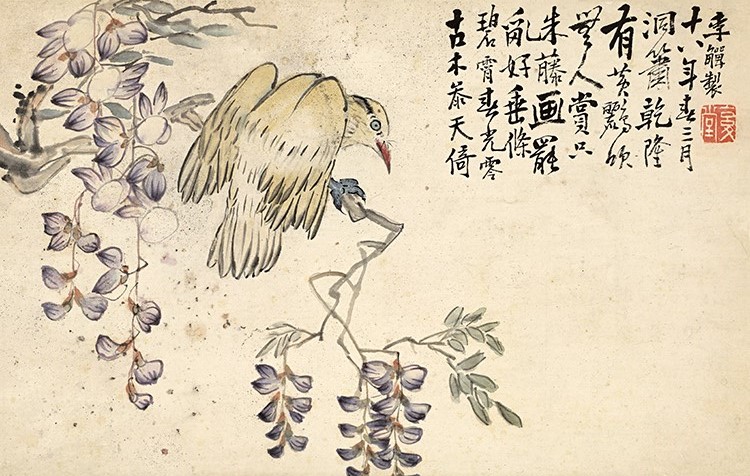 古木叅天倚
碧霄春光零
亂好垂條
朱藤画罷
無人賞只
有黄鸝頌
洞簫乾隆
十八年春三月
李觶製
復堂